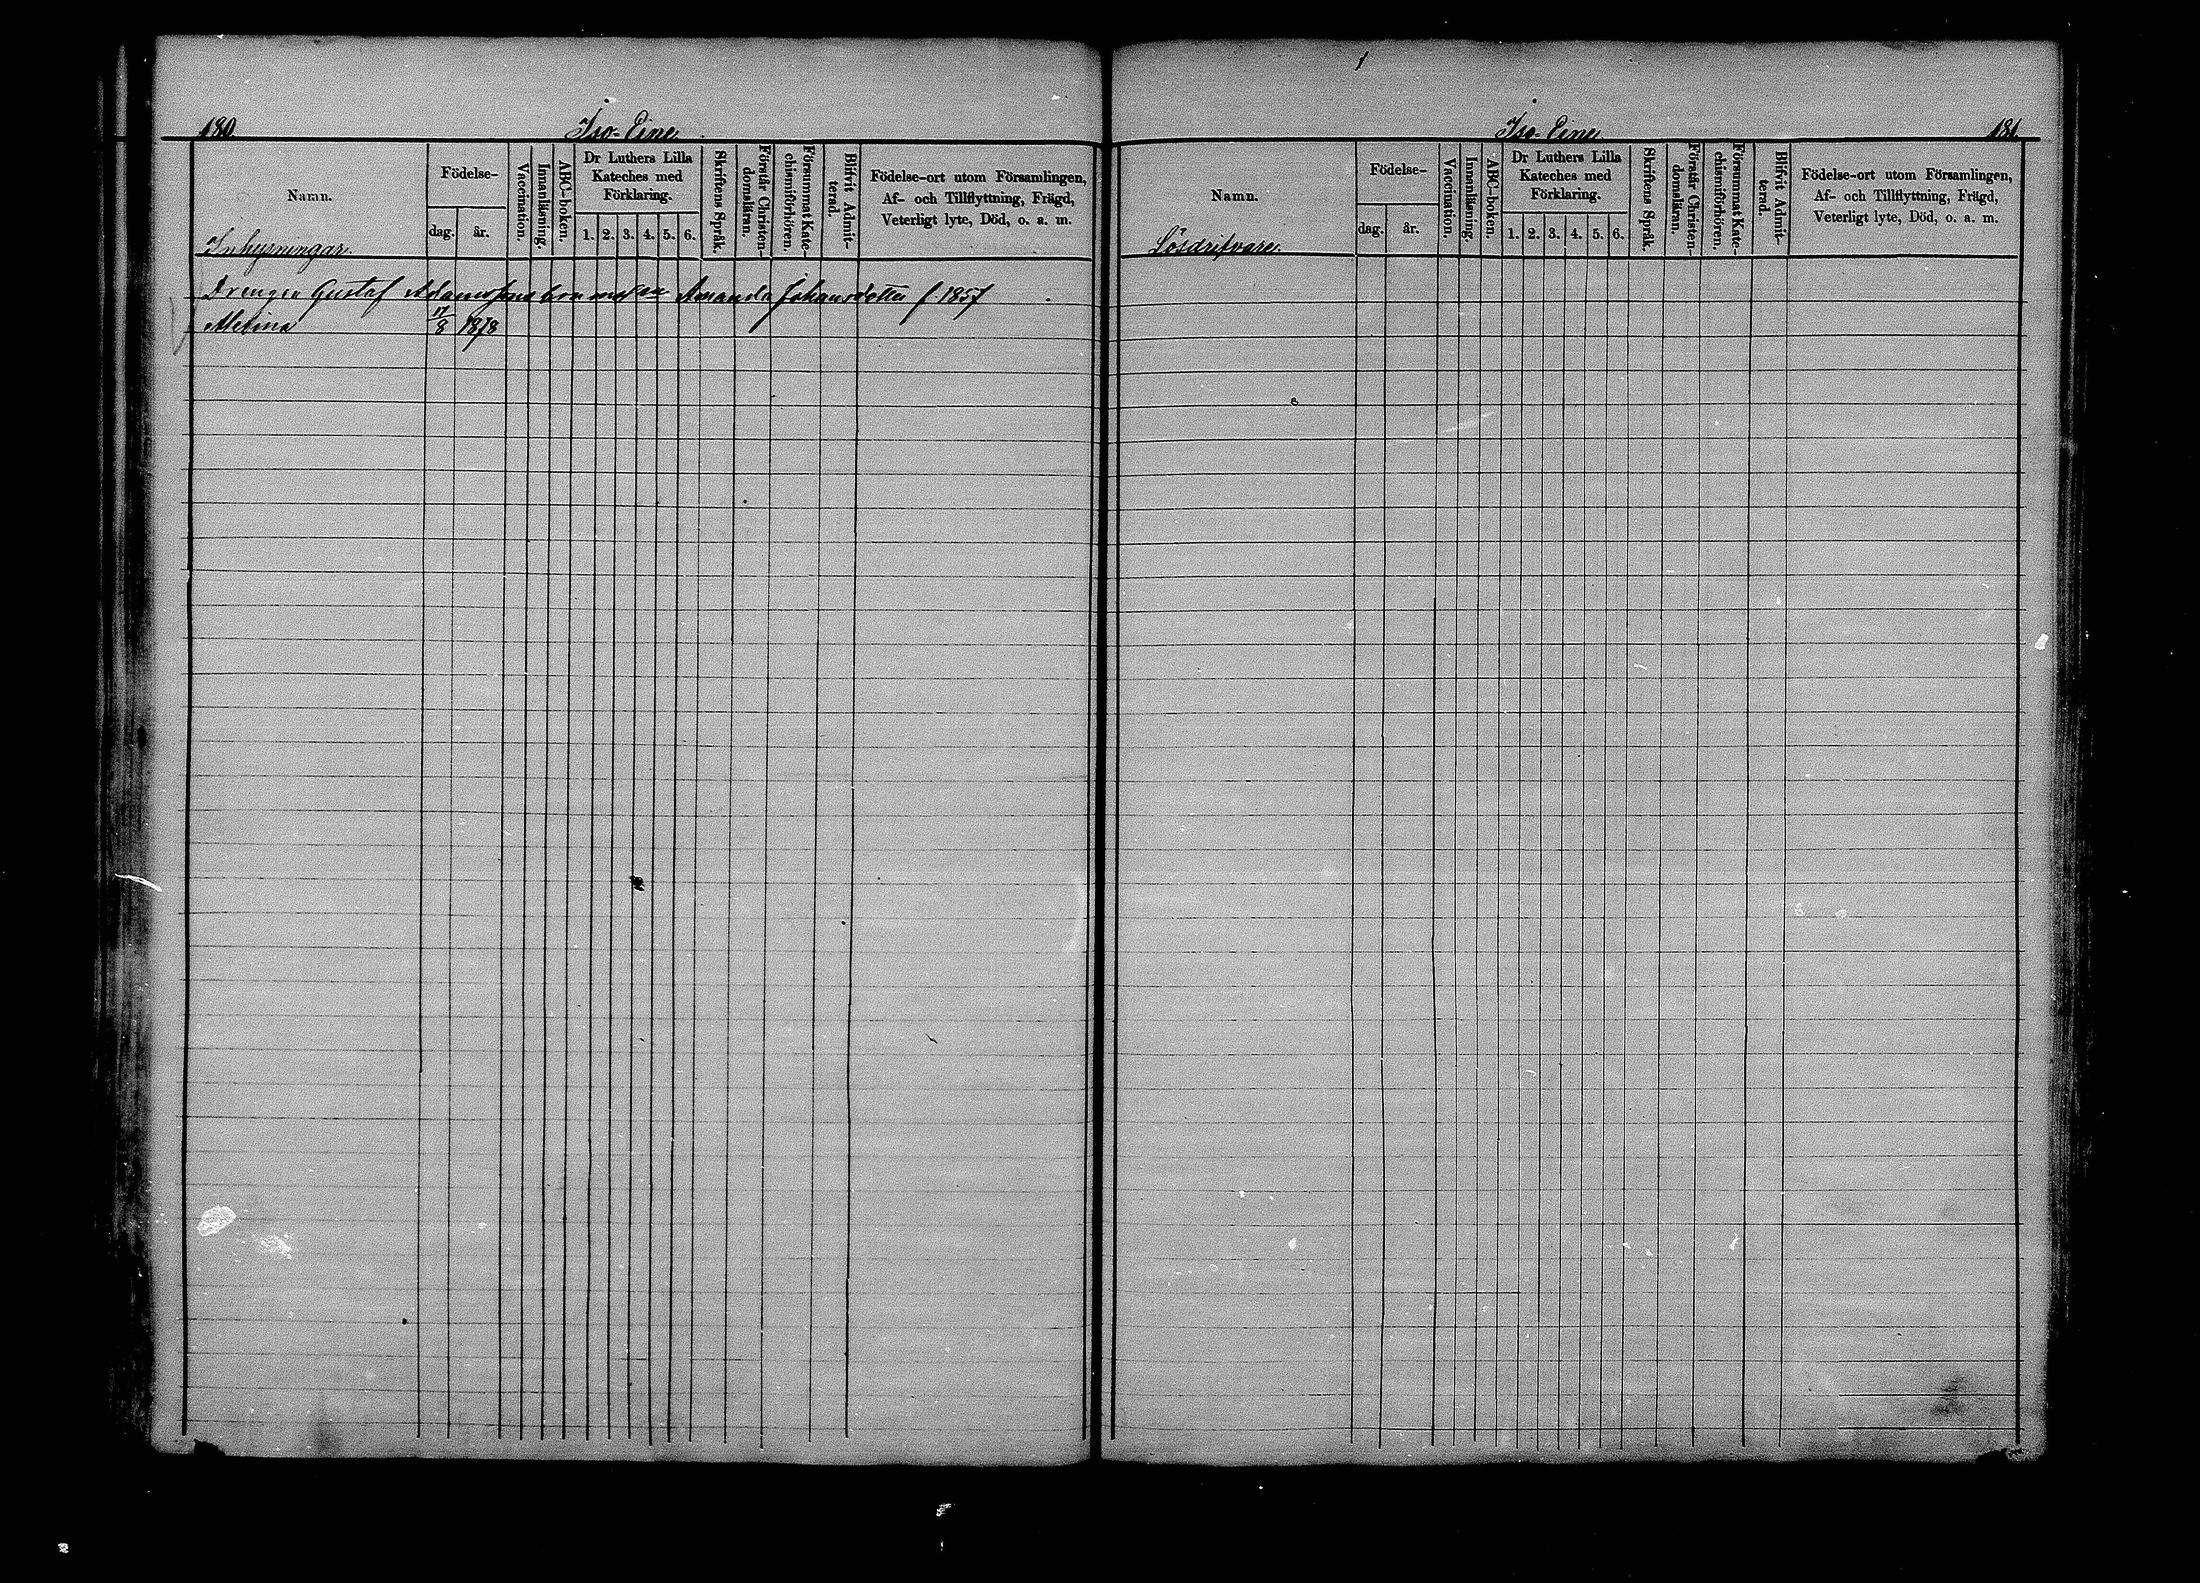 180.
Iso-Eine.
Namn.
Födelse-
dag.
år.
Vaccination.
Innanläsning.
ABC-boken.
Dr Luthers Lilla
Kateches med
Förklaring.
1. 2. 3. 4. 5. 6.
Skriftens Språk.
Förstår Christen-
domsläran.
Försummat Kate-
chismiförhören.
Blifvit Admit-
terad.
Födelse-ort utom Församlingen,
Af- och Tillflyttning, Frägd,
Veterligt lyte, Död, o. a. m.
Inhysningar.
Drengen Gustaf Adamssons Amanda Johansdotter f. 1857
17/8 1878
Iso-Eine.
181.
Namn.
Födelse-
dag.
år.
Vaccination.
Innanläsning.
ABC-boken.
Dr Luthers Lilla
Kateches med
Förklaring.
1. 2. 3. 4. 5. 6.
Skriftens Språk.
Förstår Christen-
domsläran.
Försummat Kate-
chismiförhören.
Blifvit Admit-
terad.
Födelse-ort utom Församlingen,
Af- och Tillflyttning, Frägd,
Veterligt lyte, Död, o. a. m.
Lösdrifvare.